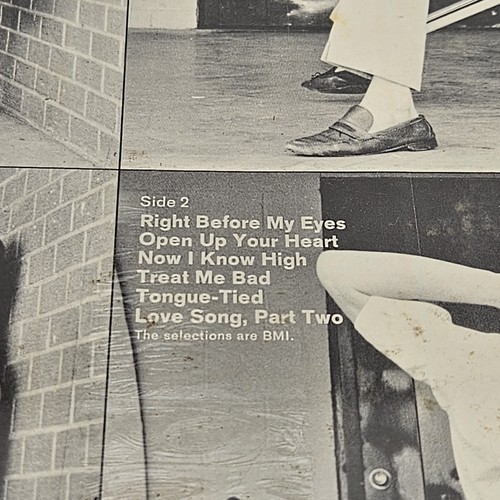 Side 2
Right Before My Eyes
Open Up Your Heart
Now I Know High
Treat Me Bad
Tongue-Tied
Love Song, Part Two
The selections are BMI.